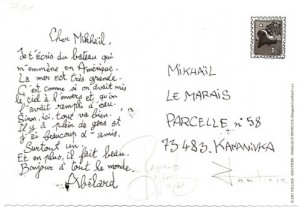 Cher Mikhaïl,
Je t'écris du bateau qui
m'emmène en Amérique.
La mer est très grande.
C'est comme si on avait mis
le ciel à l'envers et qu'on
l'avait rempli d'eau.
Sinon, ici, tout va bien.
Il y a plein de gens et
j'ai beaucoup d'amis.
Surtout un.
Et en plus, il fait beau.
Bonjour à tout le monde.
Abélard
MIKHAÏL
LE MARAIS
PARCELLE n°58
73483. KAMANIVKA